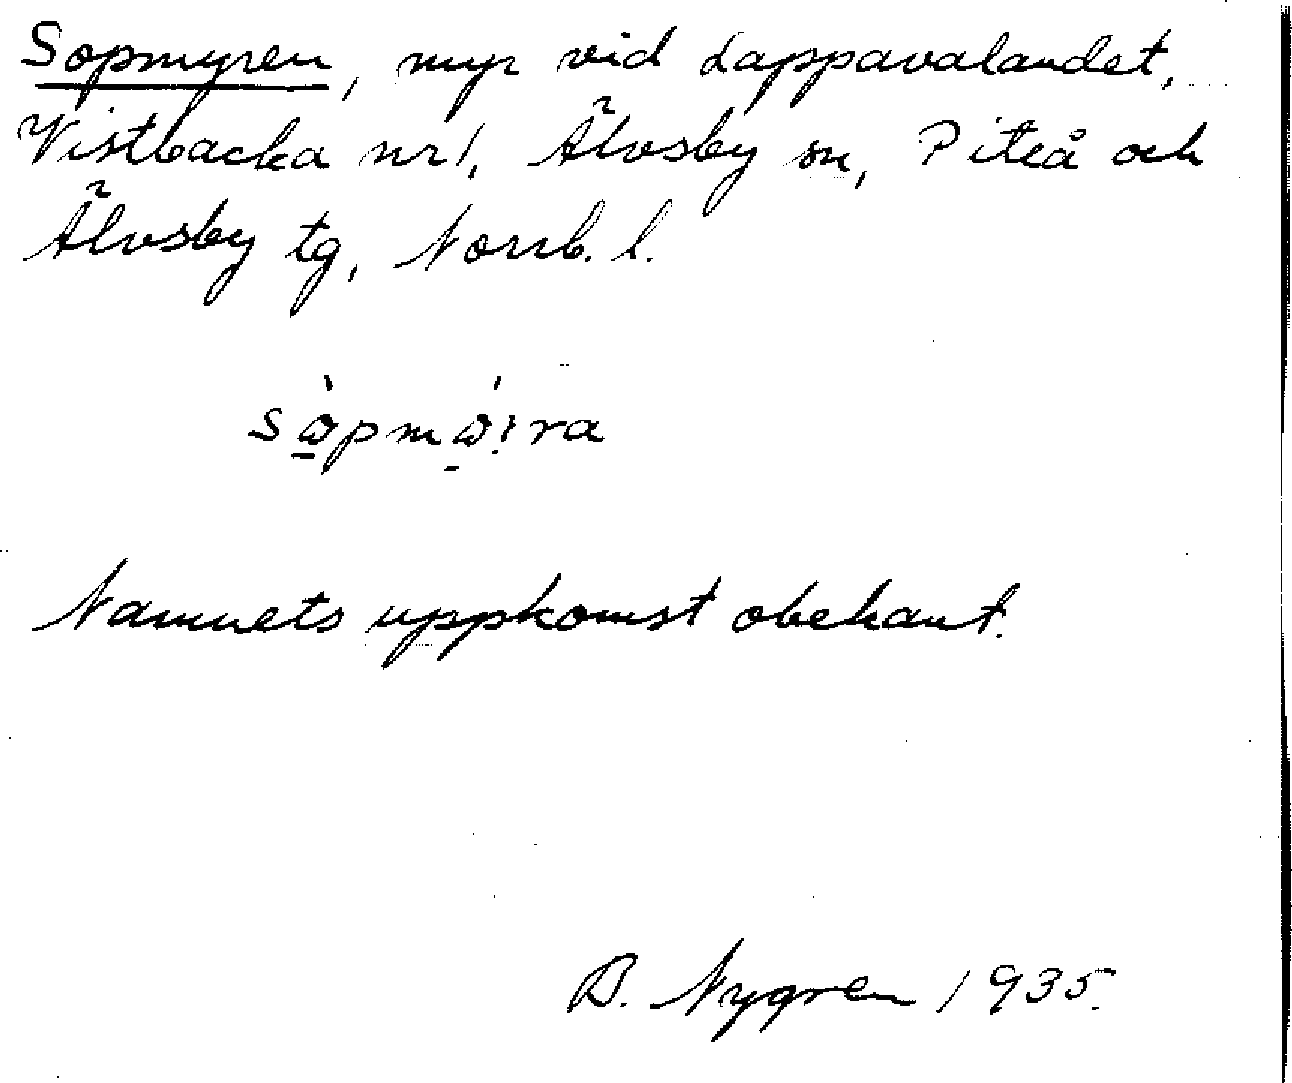 Sopmyren, myr vid Lappavalandet,
Vistbacka nr 1, Älvsby sn, Piteå och
Älvsby tg, Norrb. l.
Namnets uppkomst obekant.
B. Nygren 1935.